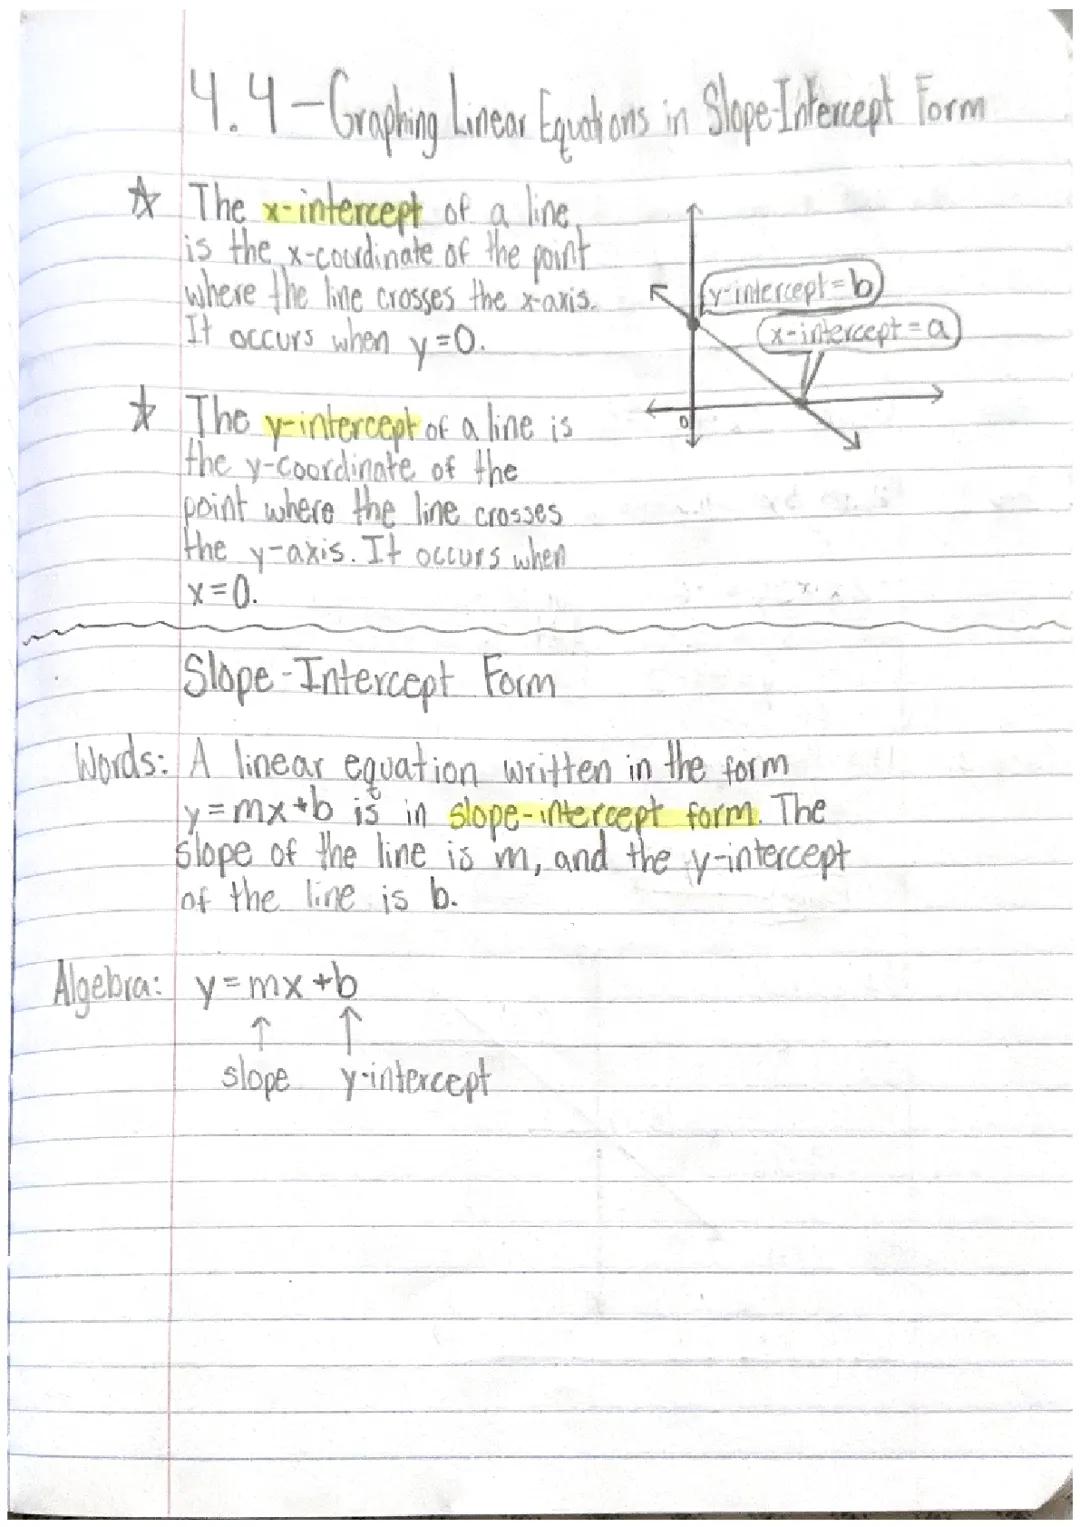 4.4-Graphing Linear Equations in Slope-Intercept Form
☆ The x-intercept of a line
is the x-coordinate of the point
where the line crosses the x-axis.
It occurs when y=0.
y-intercept=b
x-intercept=a
0
☆ The y-intercept of a line is
the y-coordinate of the
point where the line crosses
the y-axis. It occurs when
x=0.
Slope-Intercept Form
Words: A linear equation written in the form
y=mx+b is in slope-intercept form. The
slope of the line is m, and the y-intercept
of the line is b.
Algebra: y=mx+b
↑ ↑
slope y-intercept